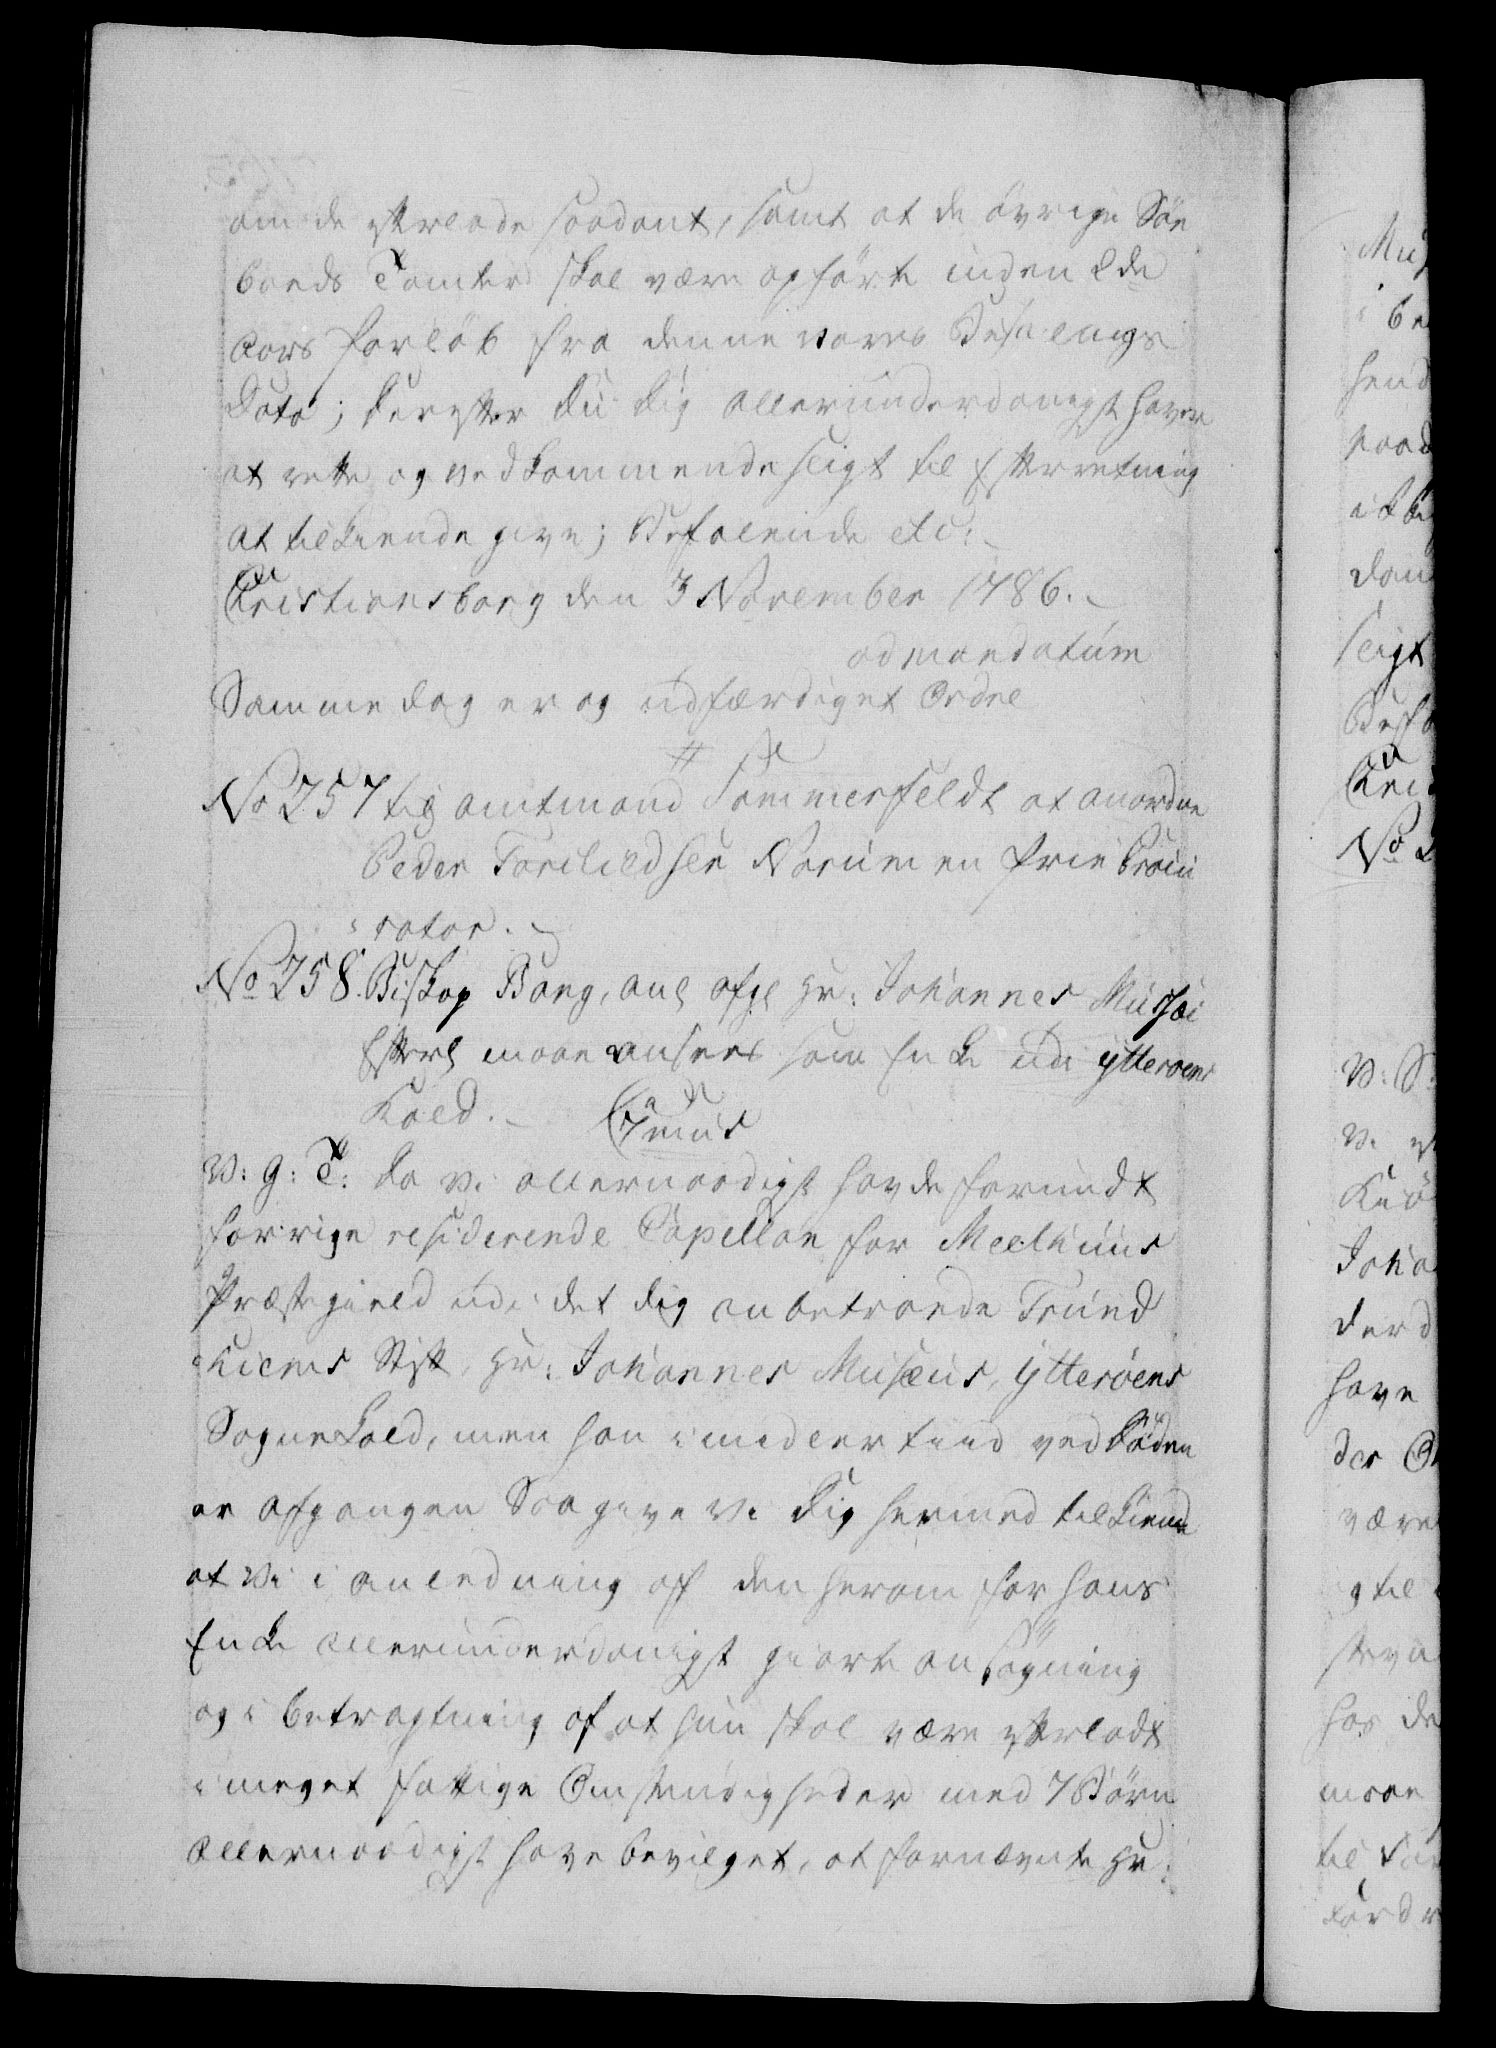 om de efterlode saadant, samt at de övrige Söe
boeds Tomter skal være opförte inden 2de
Aars Forlöb fra denne vores Befalings
Dato; derefter du dig allerunderdanigst haver
at rette og vedkommende sligt til Efterretning
at tilkiende give; Befalende etc:
Christiansborg den 3 November 1786.
ad mandatum
Samme dag er og udfærdiget Ordre
No 257 til amtmand Sommerfeldt at anordne
Peder Torkildsen Norum en frie Procu
rator.
No 258. Biskop Bang, ang afg: Hr: Johannes Musæi
Efterl maae ansees som Encke udi Ytteröens
Kald. 7mus
V: G: T: da Vi allernaadigst havde forundt
forrige residerende Capellan for Meelhuus
Præstegield udi det dig anbetroede Trund
hiems Stift, Hr: Johannes Musæus, Ytteröens
Sognekald, men han imidlertiid ved Döden
er afgangen Saa give Vi dig hermed tilkiende
at Vi i anledning af den herom for hans
Encke allerunderdanigst giorte ansögning
og i betragtning af at hun skal være efterladt
i meget fattige Omstendigheder med 7 Börn
allernaadigst have bevilget, at fornævnte Hr: